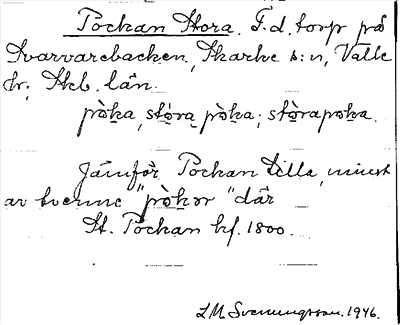 Pockan Stora. F.d. torp på
Svarvarebacken, Skarke s:n, Valle
hr, Skb. län.
pòka, stóra pòka; stòrapoka.
Jämför Pockan Lilla, minst
av tvenne "pòkor" där
St. Pockan kf. 1800.
L.M. Svenungsson. 1946.